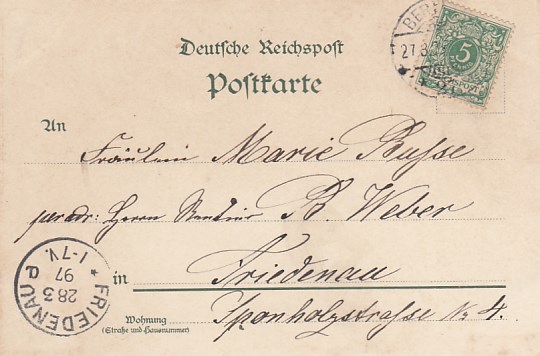 Deutsche Reichspost
Postkarte
BER
27.3
5
An Fräulein Marie Busse
per adr: Herrn Rendier B. Weber
in Friedenau
Wohnung Sponholzstrasse No 4.
(Straße und Hausnummer)
* FRIEDENAU P
28 3
97
1-7V.